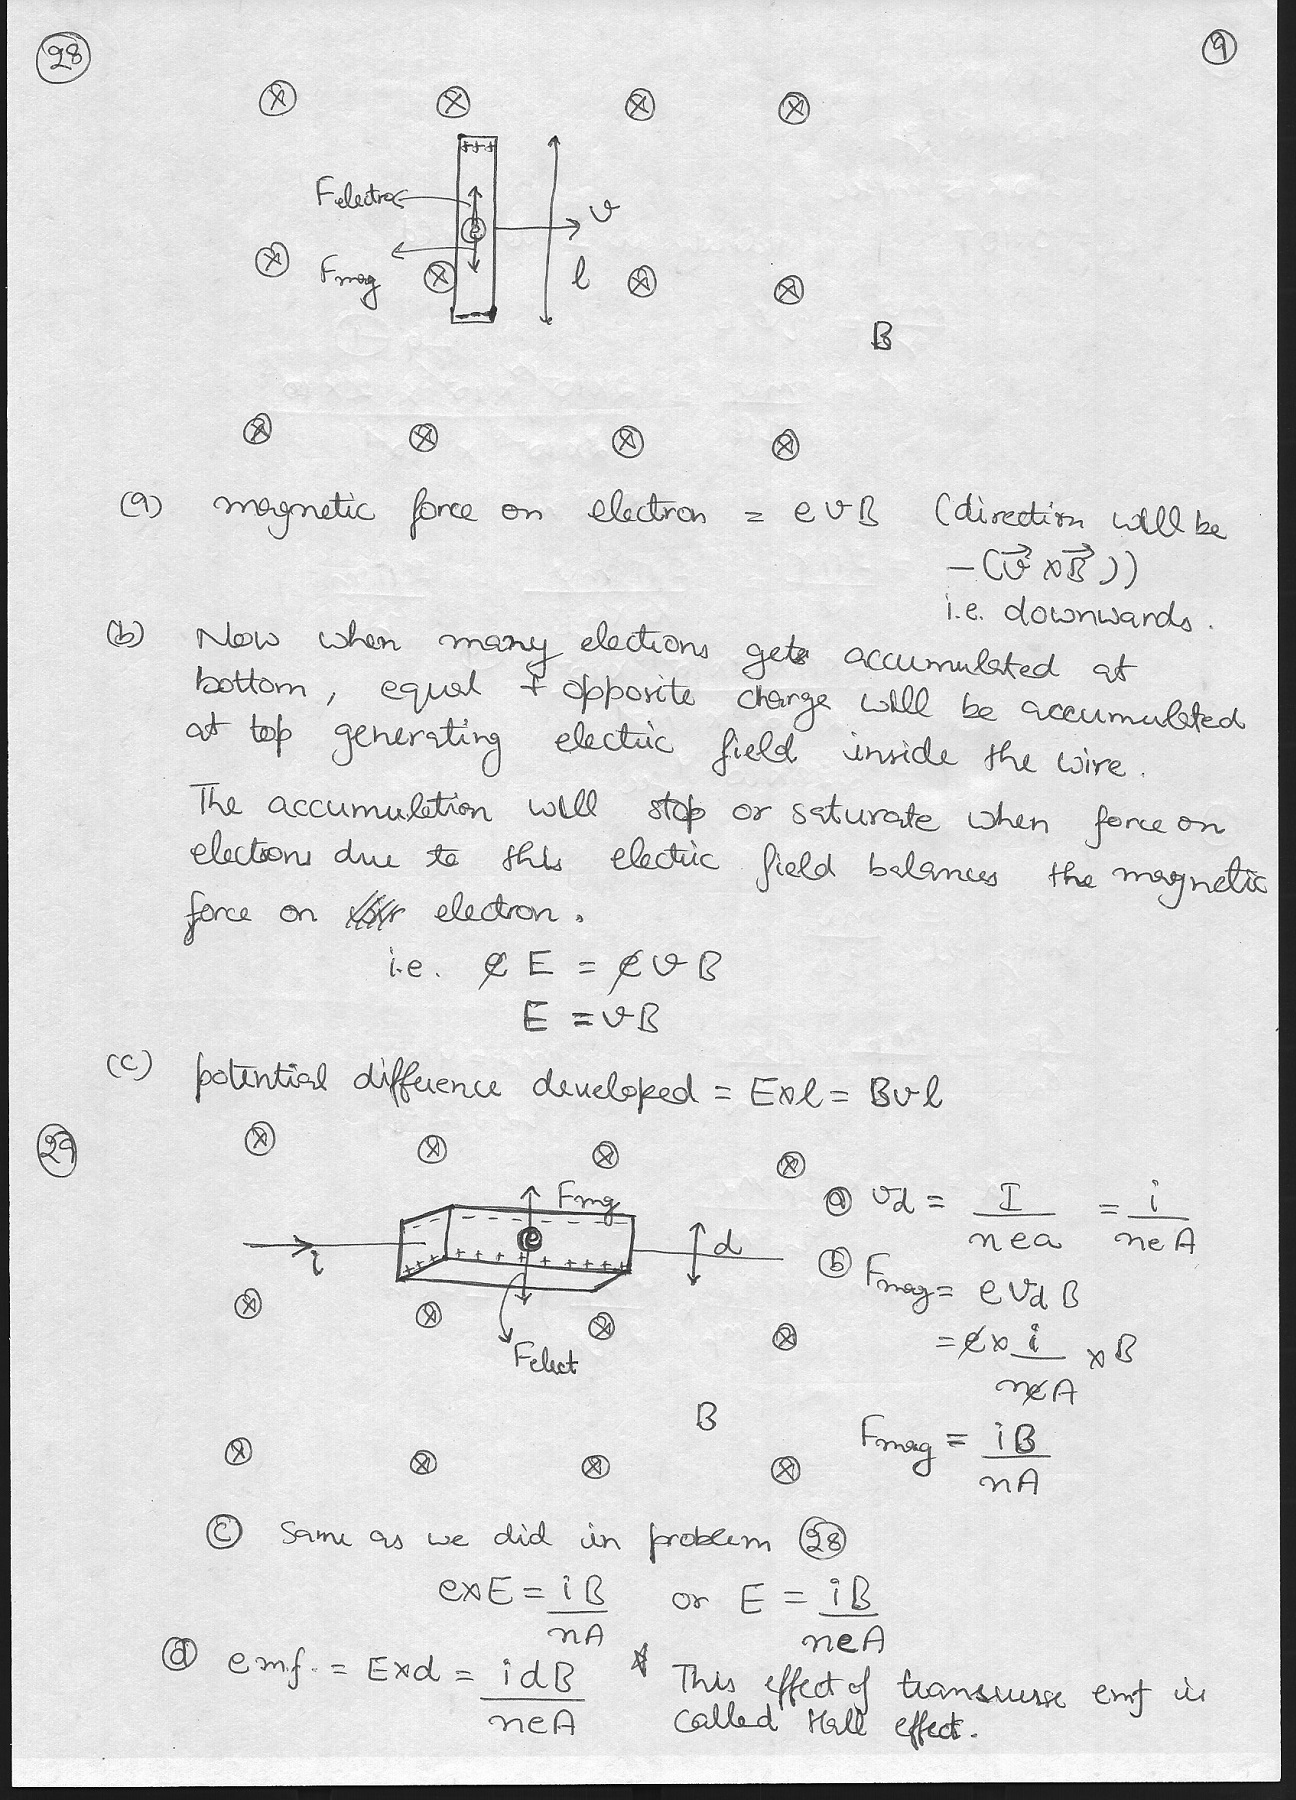 28
9
+++
Felectric
v
e
Fmag
l
B
(a) magnetic force on electron = evB (direction will be
-(v⃗ × B⃗))
i.e. downwards.
(b) Now when many electrons gets accumulated at
bottom, equal + opposite charge will be accumulated
at top generating electric field inside the wire.
The accumulation will stop or saturate when force on
electrons due to this electric field balances the magnetic
force on electron.
i.e. e E = e v B
E = vB
(c) potential difference developed = E×l = Bvl
29
Fmg
e
i
d
Felect
B
(a) vd = I/nea = i/neA
(b) Fmag = e vd B
= e × i/neA × B
Fmag = iB/nA
(c) Same as we did in problem 28
e×E = iB/nA or E = iB/neA
(d) emf. = E×d = idB/neA
* This effect of transverse emf is
called Hall effect.